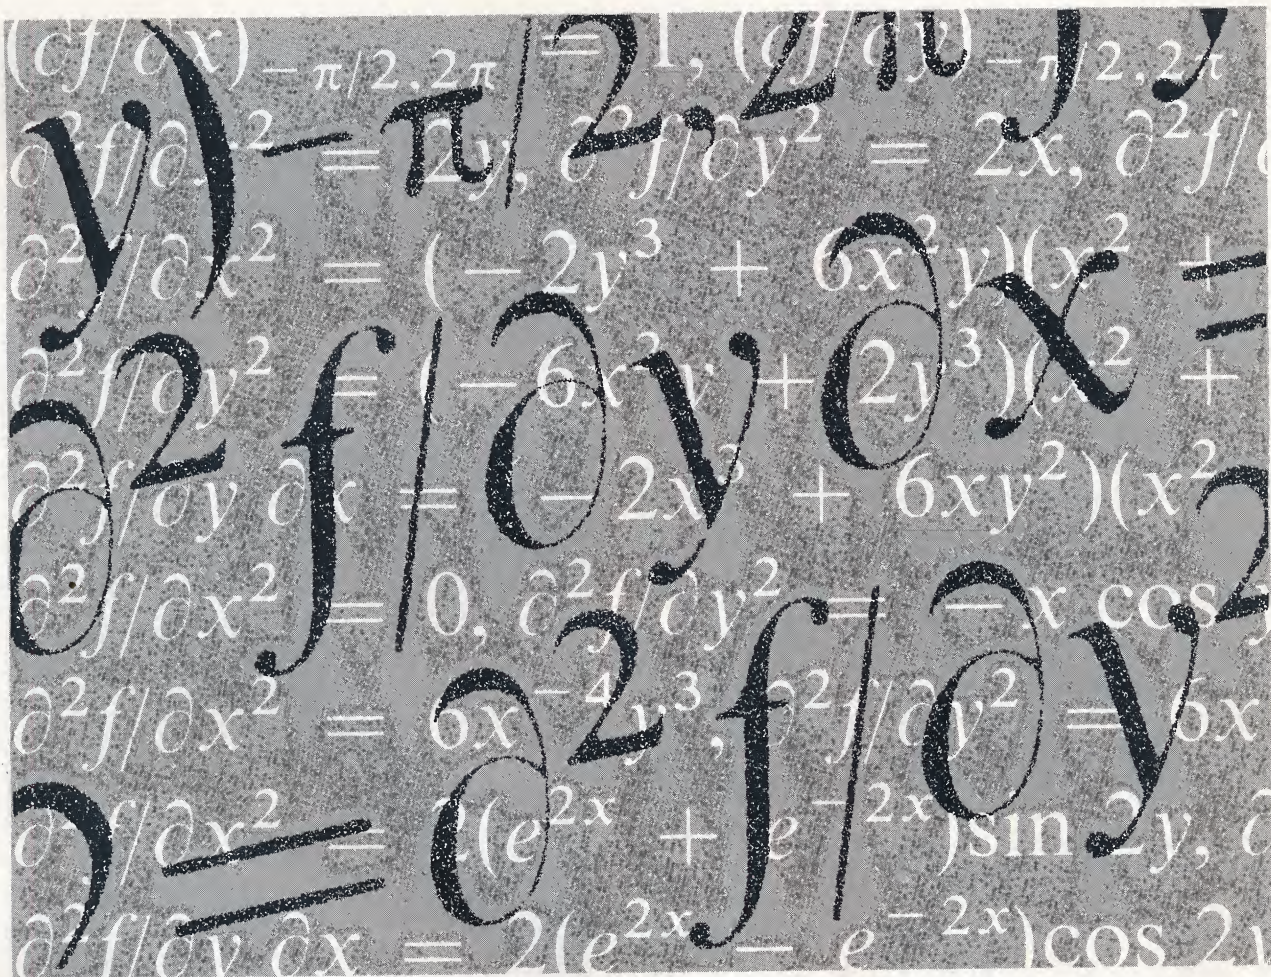 (∂f/∂x)₋π/2,2π = 1, (∂f/∂y)₋π/2,2π
∂²f/∂x² = 2y, ∂²f/∂y² = 2x, ∂²f/∂
∂²f/∂x² = (−2y³ + 6x²y)(x² +
∂²f/∂y² = (−6x²y + 2y³)(x² +
∂²f/∂y ∂x = −2x³ + 6xy²)(x²
∂²f/∂x² = 0, ∂²f/∂y² = −x cos y
∂²f/∂x² = 6x⁻⁴y³, ∂²f/∂y² = 6x
∂²f/∂x² = 2(e²ˣ + e⁻²ˣ)sin 2y, ∂
∂²f/∂y ∂x = 2(e²ˣ − e⁻²ˣ)cos 2y
y)₋π/2,2π
∂²f/∂y∂x =
) = ∂²f/∂y²